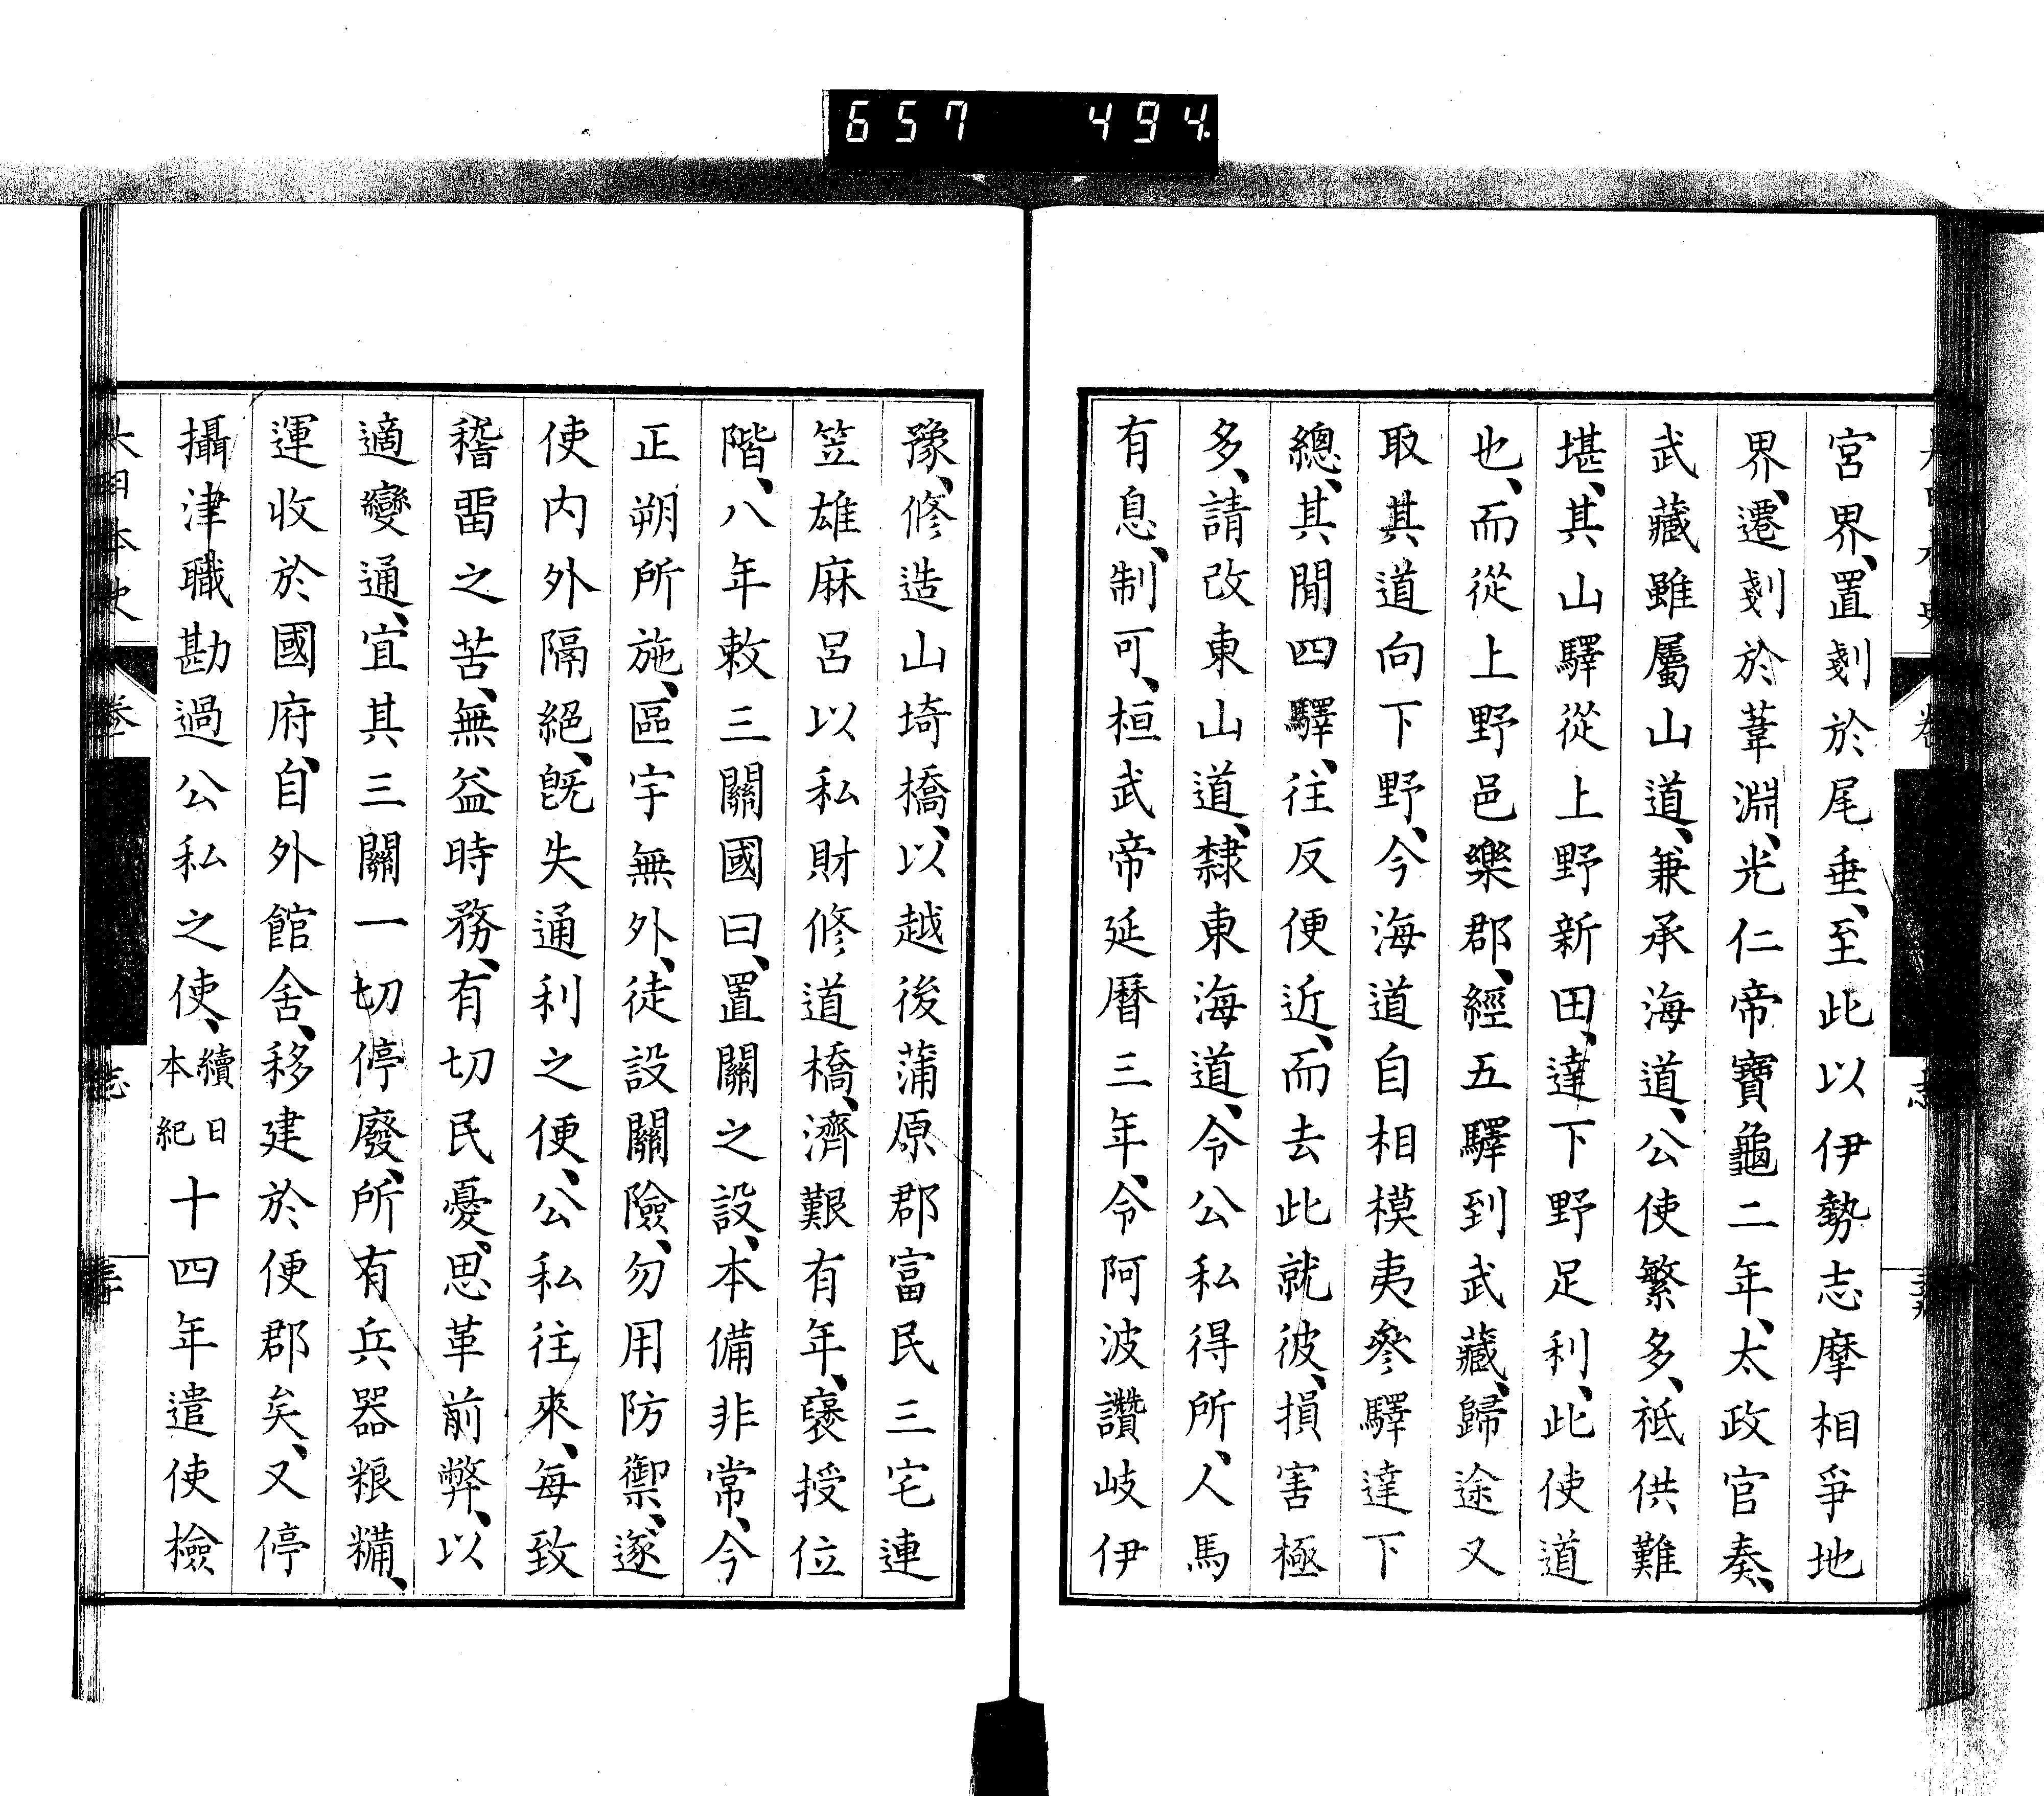 657 494.
宮界、置剗於尾垂、至此以伊勢志摩相爭地
界、遷剗於葦淵、光仁帝寶龜二年、太政官奏、
武藏雖屬山道、兼承海道、公使繁多、祗供難
堪、其山驛從上野新田、達下野足利、此使道
也、而從上野邑樂郡、經五驛到武藏、歸途又
取其道向下野、今海道自相模夷參驛達下
總、其閒四驛、往反便近、而去此就彼、損害極
多、請改東山道、隸東海道、令公私得所、人馬
有息、制可、桓武帝延曆三年、令阿波讚岐伊
豫、修造山埼橋、以越後蒲原郡富民三宅連
笠雄麻呂以私財修道橋、濟艱有年、褒授位
階、八年敕三關國曰、置關之設、本備非常、今
正朔所施、區宇無外、徒設關險、勿用防禦、遂
使內外隔絕、旣失通利之便、公私往來、每致
稽畱之苦、無益時務、有切民憂、思革前弊、以
適變通、宜其三關一切停廢、所有兵器粮糒、
運收於國府、自外館舍、移建於便郡矣、又停
攝津職勘過公私之使、續日本紀十四年遣使檢
大日本史 卷 志